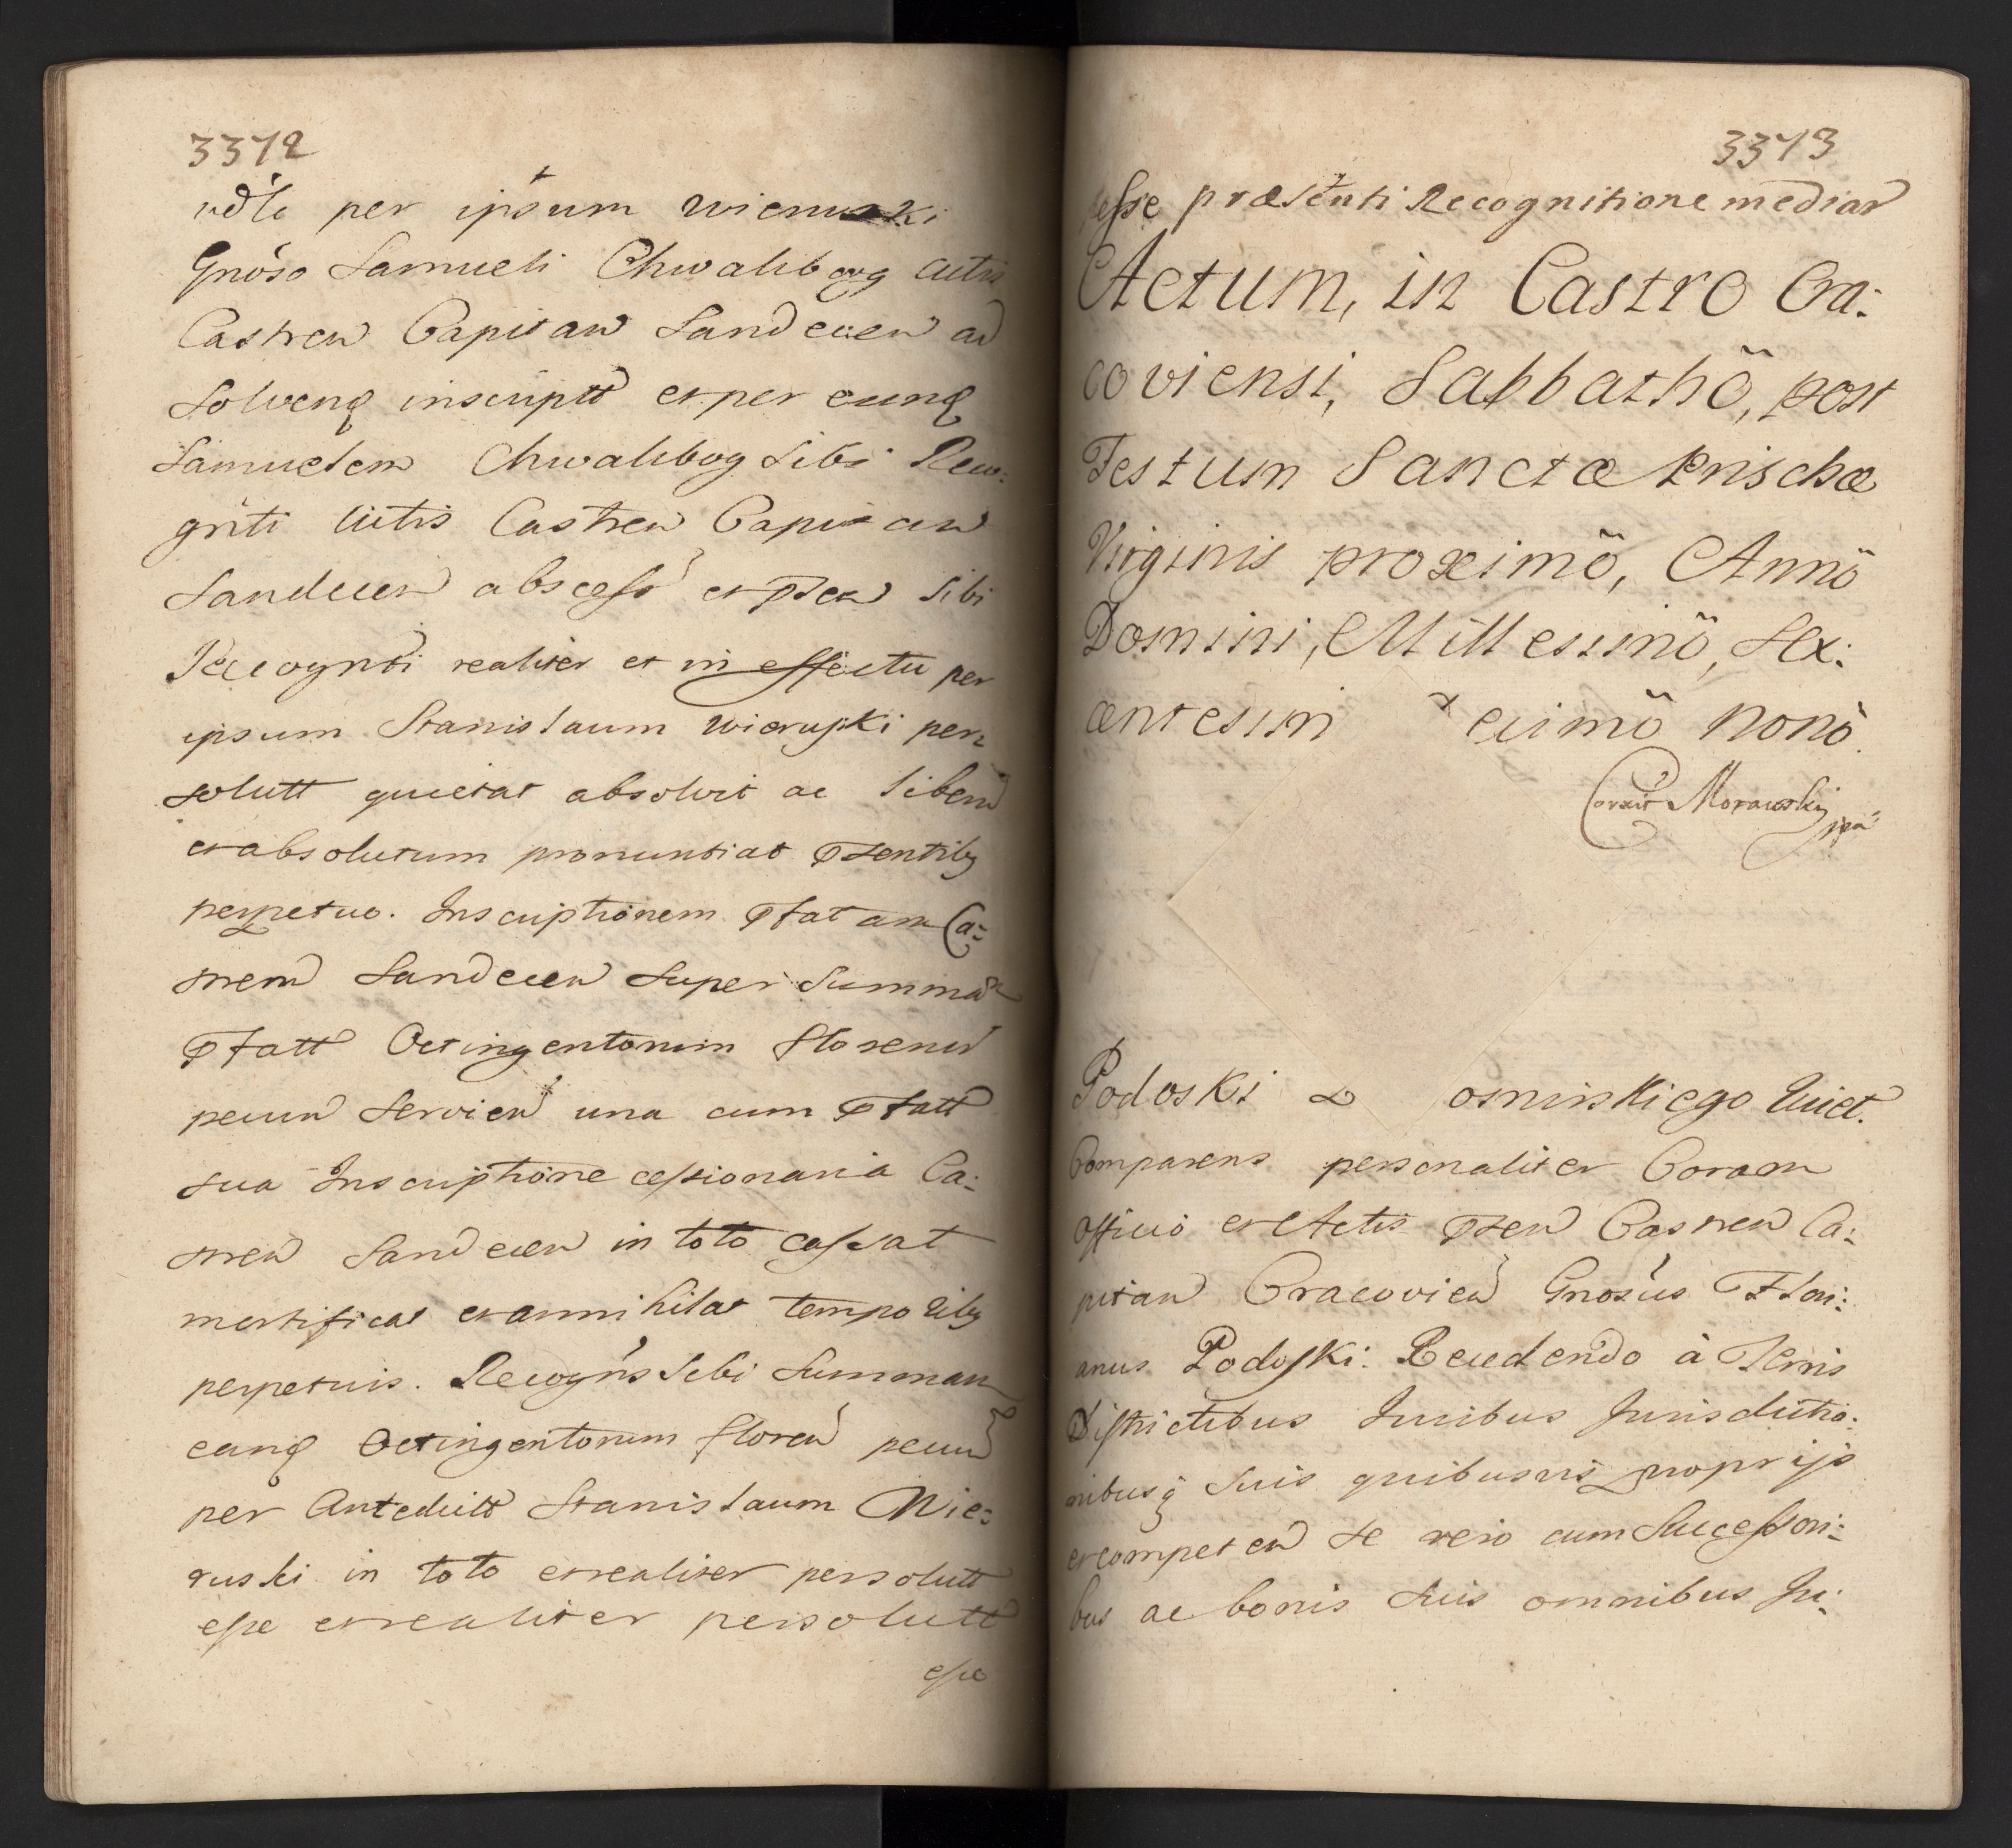 3372
ndle per ipsum Wieruski
Gnoso Samueli Chwalibog Actis
Castren Capitan Sandecen ad
Solvenq inscriptt et per eunq
Samuelem Chwalibog Sibi Reco:
gnti Actis Castren Capitan
Sandecen abscess et psen Sibi
Recognti realiter et in effectu per
ipsum Stanislaum Wieruski per:
solutt quietat absolvit ac liberu
et absolutum pronuntiat psentibq
perpetuo. Inscriptionem pfatam Ca:
strem Sandecen super Summa
pfatt Octingentorum floren
pecun Servien una cum pfatt
sua Inscriptione cessionaria Ca:
stren Sandecen in toto cassat
mortificat et annihilat temporibq
perpetuis. Recogns Sibi Summam
eanq Octingentorum floren pecun
per Antedictt Stanislaum Wie:
ruski in toto et realiter persolutt
esse et realiter persolutt
esse
3373
esse præsenti Recognitione median
Actum, in Castro Cra:
coviensi, Sabbathö, post
Festum Sanctæ Prischæ
Virginis proximö, Annö
Domini, Millesimö, Sex:
centesim ecimö Nonö.
Corxit Morawski mpa
Podoski osninskiego Quiet.
Comparens personaliter Coram
Officio et Actis psen Castren Ca:
pitan Cracovien Gnosus Flori:
anus Podoski. Recedendo à Terris
Districtibus Juribus Jurisdictio:
nibusq Suis quibusvis proprijs
et competen se vero cum Successori:
bus ac bonis Suis omnibus Ju: